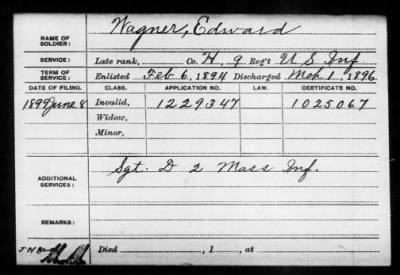 NAME OF SOLDIER: Wagner, Edward
SERVICE: Late rank, Co. H, 9 Reg't U S Inf
TERM OF SERVICE: Enlisted Feb 6, 1894 Discharged Mch 1, 1896
DATE OF FILING. CLASS. APPLICATION NO. LAW. CERTIFICATE NO.
1899 June 8 Invalid, 1229347 1025067
Widow,
Minor,
ADDITIONAL SERVICES: Sgt. D 2 Mass Inf.
REMARKS:
Died , 1 , at